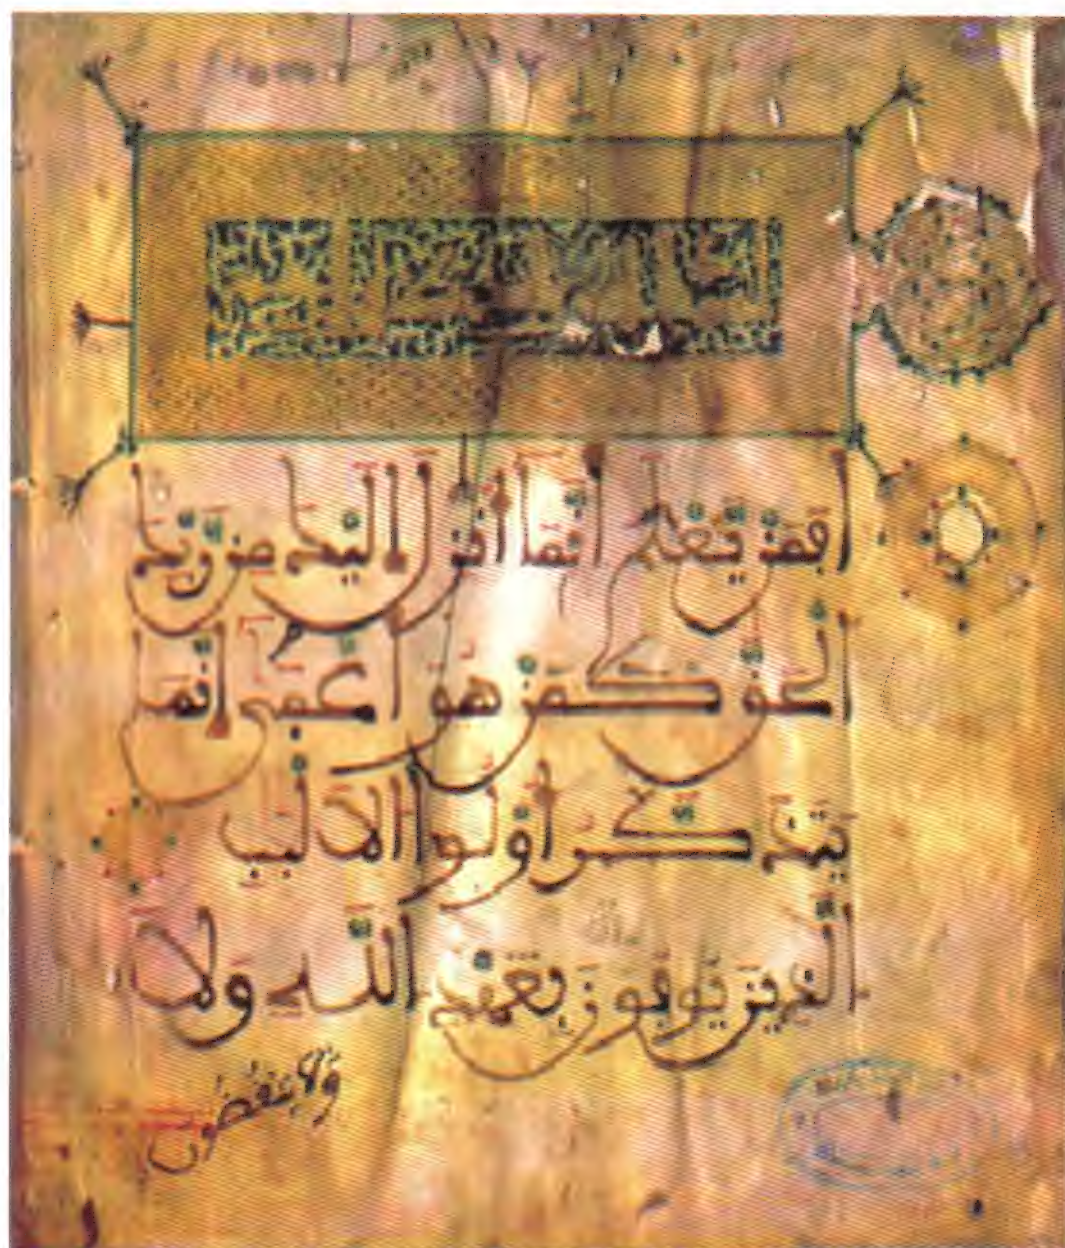 أفمن يعلم أنما أنزل إليك من ربك
الحق كمن هو أعمى إنما
يتذكر أولوا الالبب
الذين يوفون بعهد الله ولا
ولا ينقضون